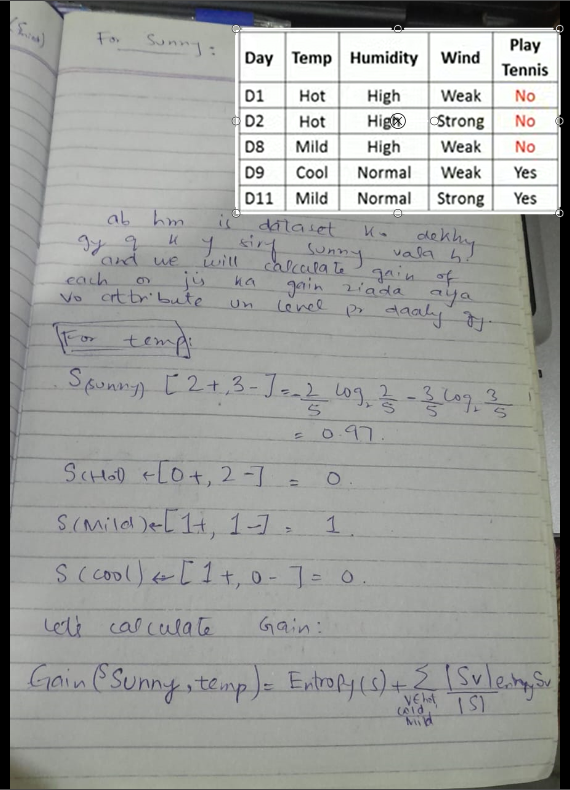 For Sunny:
Day Temp Humidity Wind Play Tennis
D1 Hot High Weak No
D2 Hot High Strong No
D8 Mild High Weak No
D9 Cool Normal Weak Yes
D11 Mild Normal Strong Yes
ab hm is dataset ko dekhy
gy q k y sirf sunny vala h.
and we will calculate gain of
each or jis ka gain ziada aya
vo attribute un level pr daaly gy.
For temp:
S(sunny) [2+,3-] = -2/5 log₂ 2/5 - 3/5 log₂ 3/5
= 0.97.
S(Hot) ← [0+, 2-] = 0.
S(Mild) ← [1+, 1-] = 1.
S(cool) ← [1+, 0-] = 0.
Let's calculate Gain:
Gain(S Sunny, temp) = Entropy(s) + Σ |Sv|/|S| entropy Sv
VEhot,
cold,
Mild